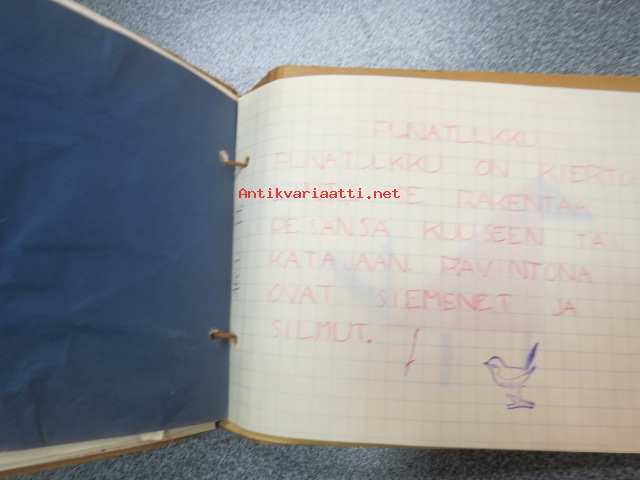 PUNATULKKU
PUNATULKKU ON KIERTO
Antikvariaatti.net
RAKENTAA
PESÄNSÄ KUUSEEN TAI
KATAJAAN. RAVINTONA
OVAT SIEMENET JA
SILMUT.